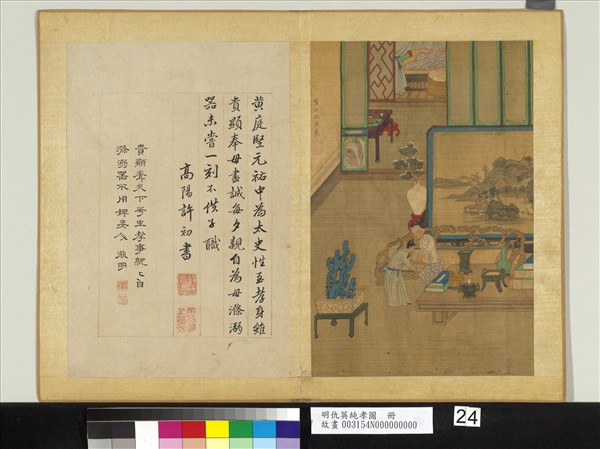 黃庭堅元祐中為太史性至孝身雖
貴顯奉母盡誠每夕親自為母滌溺
器未嘗一刻不供子職
高陽許初書
貴顯聞天下平生孝事親親自
滌溺器不用婢妾人 徵明
明仇英純孝圖 冊
故畫 003154N000000000
24